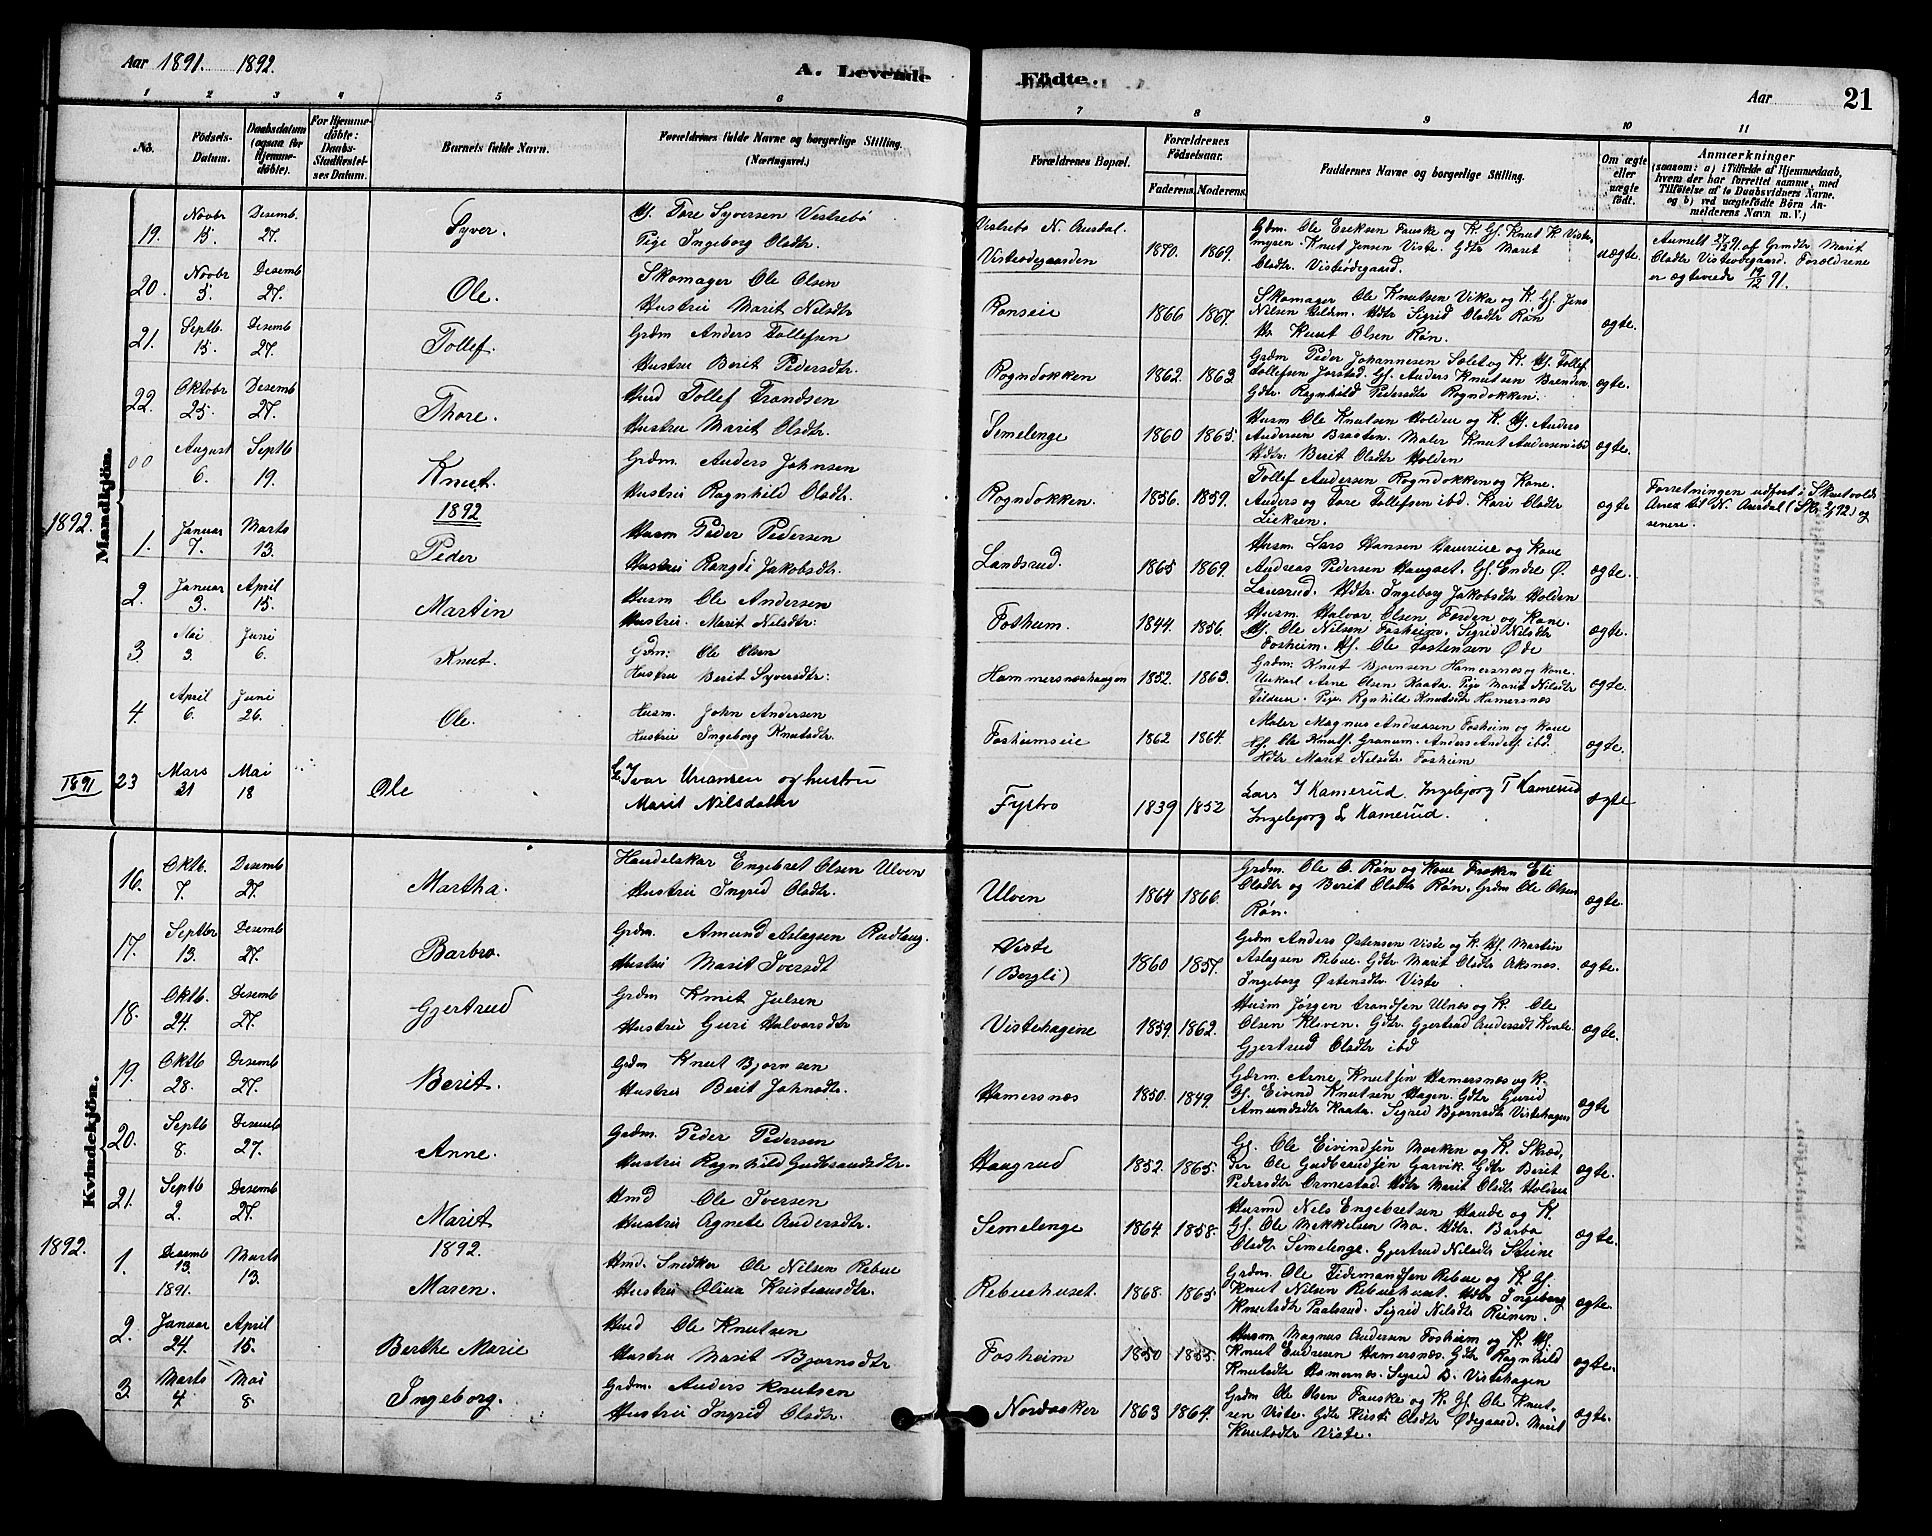 Aar 1891. 1892.
A. Levende Födte.
Aar
21
1 2 3 4 5 6 7 8 9 10 11
No.
Födsels-Datum.
Daabsdatum (ogsaa for Hjemmedöbte).
For Hjemmedöbte: Daabs-Stadfæstelses Datum.
Barnets fulde Navn.
Forældrenes fulde Navne og borgerlige Stilling. (Næringsvei.)
Forældrenes Bopæl.
Forældrenes Födselsaar.
Faderens. Moderens.
Faddernes Navne og borgerlige Stilling.
Om ægte eller uægte födt.
Anmærkninger
(saasom: a) i Tilfælde af Hjemmedaab, hvem der har forrettet samme, med Tilföielse af to Daabsvidners Navne, og b) ved uægtefödte Börn Anmelderens Navn m. V.)
Mandkjön.
19. Novbr 15. Desemb. 27. Syver.
Uf. Tore Syversen Vestrebö
Pige Ingeborg Olsdtr.
Vestrebö N. Aurdal.
Visteødegaarden 1870. 1869.
Gdm. Ole Eriksen Fauske og K. Gf. Knut K. Viste-
mysen. Knut Jensen Viste. Gdtr Marit
Olsdtr. Visteødegaard.
uægte.
Anmelt 27/12 91. af Grmdtr Marit
Olsdtr Visteødegaard. Forældrene
er ægteviede 19/12 91.
20. Novbr 5. Desemb 27. Ole.
Skomager Ole Olsen
Hustru Marit Nilsdtr
Rønseie 1866 1867.
Skomager Ole Knutsen Vika og K. Gf. Jens
Nilsen Hdtr Sigrid Olsdtr Røn
Knut Olsen Røn.
ægte.
21. Septb. 15. Desemb 27. Tollef.
Grdm Anders Tollefsen
Hustru Berit Pedersdtr.
Rogndokken 1862. 1863
Grdm Peder Johannesen Solet og K. Uf. Tollef
Tollefsen Jorstad. Gf. Anders Knutsen Brenden
Gdtr. Ragnhild Pedersdtr Rogndokken.
ægte.
22. Oktobr 25. Desemb 27. Thore.
Husd Tollef Trondsen
Hustru Marit Olsdtr.
Semelenge 1860 1865.
Husm Ole Knutsen Holden og K. Uf. Anders
Andersen Braaten. Maler Knut Andersen ibd
Hdtr. Berit Olsdtr Holden
ægte.
00 August 6. Septb 19. Knut.
Grdm. Anders Johnsen
Hustru Ragnhild Olsdtr.
Rogndokken. 1856. 1859.
Tollef Andersen Rogndokken og Kone.
Anders og Tore Tollefsen ibd. Kari Olsdtr
ægte
Forretningen udført i Skrutvolds
Anex til N. Aurdal (Skr. 2/1 92) og
senere.
1892
1892.
1. Januar 7. Marts 13. Peder
Husm Peder Pedersen
Hustru Rangdi Jakobsdtr.
Landsrud. 1865 1869.
Husm. Lars Hansen og Kone
Andreas Pedersen Haugset. Gf. Endre Ø.
Hdtr. Ingeborg Jakobsdtr Holden
ægte.
2. Januar 3. April 15. Martin
Husm Ole Andersen
Hustru. Marit Nilsdtr.
Fosheim. 1844. 1856.
Husm. Halvor Olsen Forden og Kone.
Uf. Ole Nilsen Fosheim. Sigrid Nilsdtr
Fosheim. Uf. Ole Tostensen Øde
ægte.
3 Mai 3. Juni 6. Knut.
Grdm. Ole Olsen
Hustru Berit Syversdtr.
Hammersneshaugen 1852. 1863.
Grdm. Knut Bjørnsen Hamersnes og Kone.
Unkarl Arne Olsen Kaata. Pige Marit Nilsdtr
Pige. Ragnhild Knutsdtr Hamersnæs
ægte.
4. April 6. Juni 26. Ole.
Husm. John Andersen
Hustru Ingeborg Knutsdtr.
Fosheimseie 1862 1864.
Maler Magnus Andreasen Fosheim og Kone
Gf. Ole Knutf. Granum. Anders Andersf. ibd.
Hdtr Marit Nilsdtr Fosheim
ægte.
1891
23 Mars 21 Mai 18 Ole
Ivar Uriansen og hustru
Marit Nilsdatter
Fystro 1839 1852
Lars I Kamerud. Ingebjorg T Kamerud
Ingebjorg L Kamerud.
ægte
Kvindekjön.
16. Oktb. 7. Desemb 27. Martha.
Handelskar Engebret Olsen Ulven
Hustru Ingrid Olsdtr.
Ulven 1864 1866.
Grdm. Ole O. Røn og Kone Frøken Eli
Olsdtr og Berit Olsdtr Røn. Grdm Ole Olsen
Røn.
ægte.
17. Septbr 13. Desemb 27. Barbro.
Grdm. Amund Aslagsen Rudlaug.
Hustru Marit Iversdt
Viste
(Bergli) 1860 1857.
Grdm Anders Østensen Viste og K. Uf. Martin
Aslagsen Rebue. Gdtr Marit Olsdtr Arknes.
Ingeborg Østensdtr. Viste
ægte.
18. Oktb. 24. Desemb 27. Gjertrud
Grdm Knut Julsen
Hustru Guri Halvorsdtr
Vistehagene 1859. 1862.
Husm Jørgen Trondsen Ulnes og K. Ole
Olsen Kleven. Gdtr Gjertrud Andersdt Kvale
Gjertrud Olsdtr ibd
ægte.
19. Oktb 28. Desemb 27. Berit.
Grdm Knut Bjørnsen
Hustru Berit Johnsdtr.
Hamersnæs 1850. 1849.
Grdm. Arne Knutsen Hamersnæs og K.
Gf. Eivind Knutsen Hagen. Gdtr Gurid
Amundsdtr Kaata. Sigrid Bjørnsdtr Vistehagen
ægte
20. Septb 8. Desemb 27. Anne.
Grdm. Peder Pedersen
Hustru Ragnhild Gudbrandsdtr.
Haugrud 1852. 1865.
Gf. Ole Eivindsen Morken og K. Skræd
der Ole Gudbrandsen Garvik. Gdtr Berit
Pedersdtr Ormestad. Hdtr Marit Olsdtr Holden
ægte.
21. Septb 2. Desemb 27. Marit
Hmd Ole Iversen
Hustru Agnete Andersdtr.
Semelenge 1864. 1858.
Husmd Nils Engebretsen Haude og K.
Gf. Ole Mikkelsen Mo. Hdtr. Barbo
Olsdtr Semelenge. Gjertrud Nilsdtr Steine
ægte.
1892.
1892.
1. Desemb 13. 1891. Marts 13. Maren.
Hmd. Snedker Ole Nilsen Rebue
Hustru Olina Kristiansdtr.
Rebuehuset. 1868. 1865
Grdm. Ole Tidemandsen Rebue og K. Gf.
Knut Nilsen Rebuehuset. Hdtr Ingeborg
Knutsdtr Paalsrud. Sigrid Nilsdtr Reinen.
ægte.
2. Januar 24. April 15. Berthe Marie
Husd Ole Knutsen
Hustru Marit Bjørnsdtr
Fosheim 1850 1855.
Husm Magnus Andersen Fosheim og K. Uf.
Knut Endresen Hamersnæs. Gdtr Ragnhild
Knutsdtr Hamersnes. Sigrid B. Vistehagen
ægte.
3. Marts 4. Mai 8. Ingeborg.
Grdm. Anders Knutsen
Hustru Ingrid Olsdtr.
Nordaaker 1863 1864.
Grdm Ole Olsen Fauske og K. Gf. Ole Knut-
sen Viste. Gdtr Kirsti Olsdtr Ødegaard. Marit
Knutsdtr Viste.
ægte.